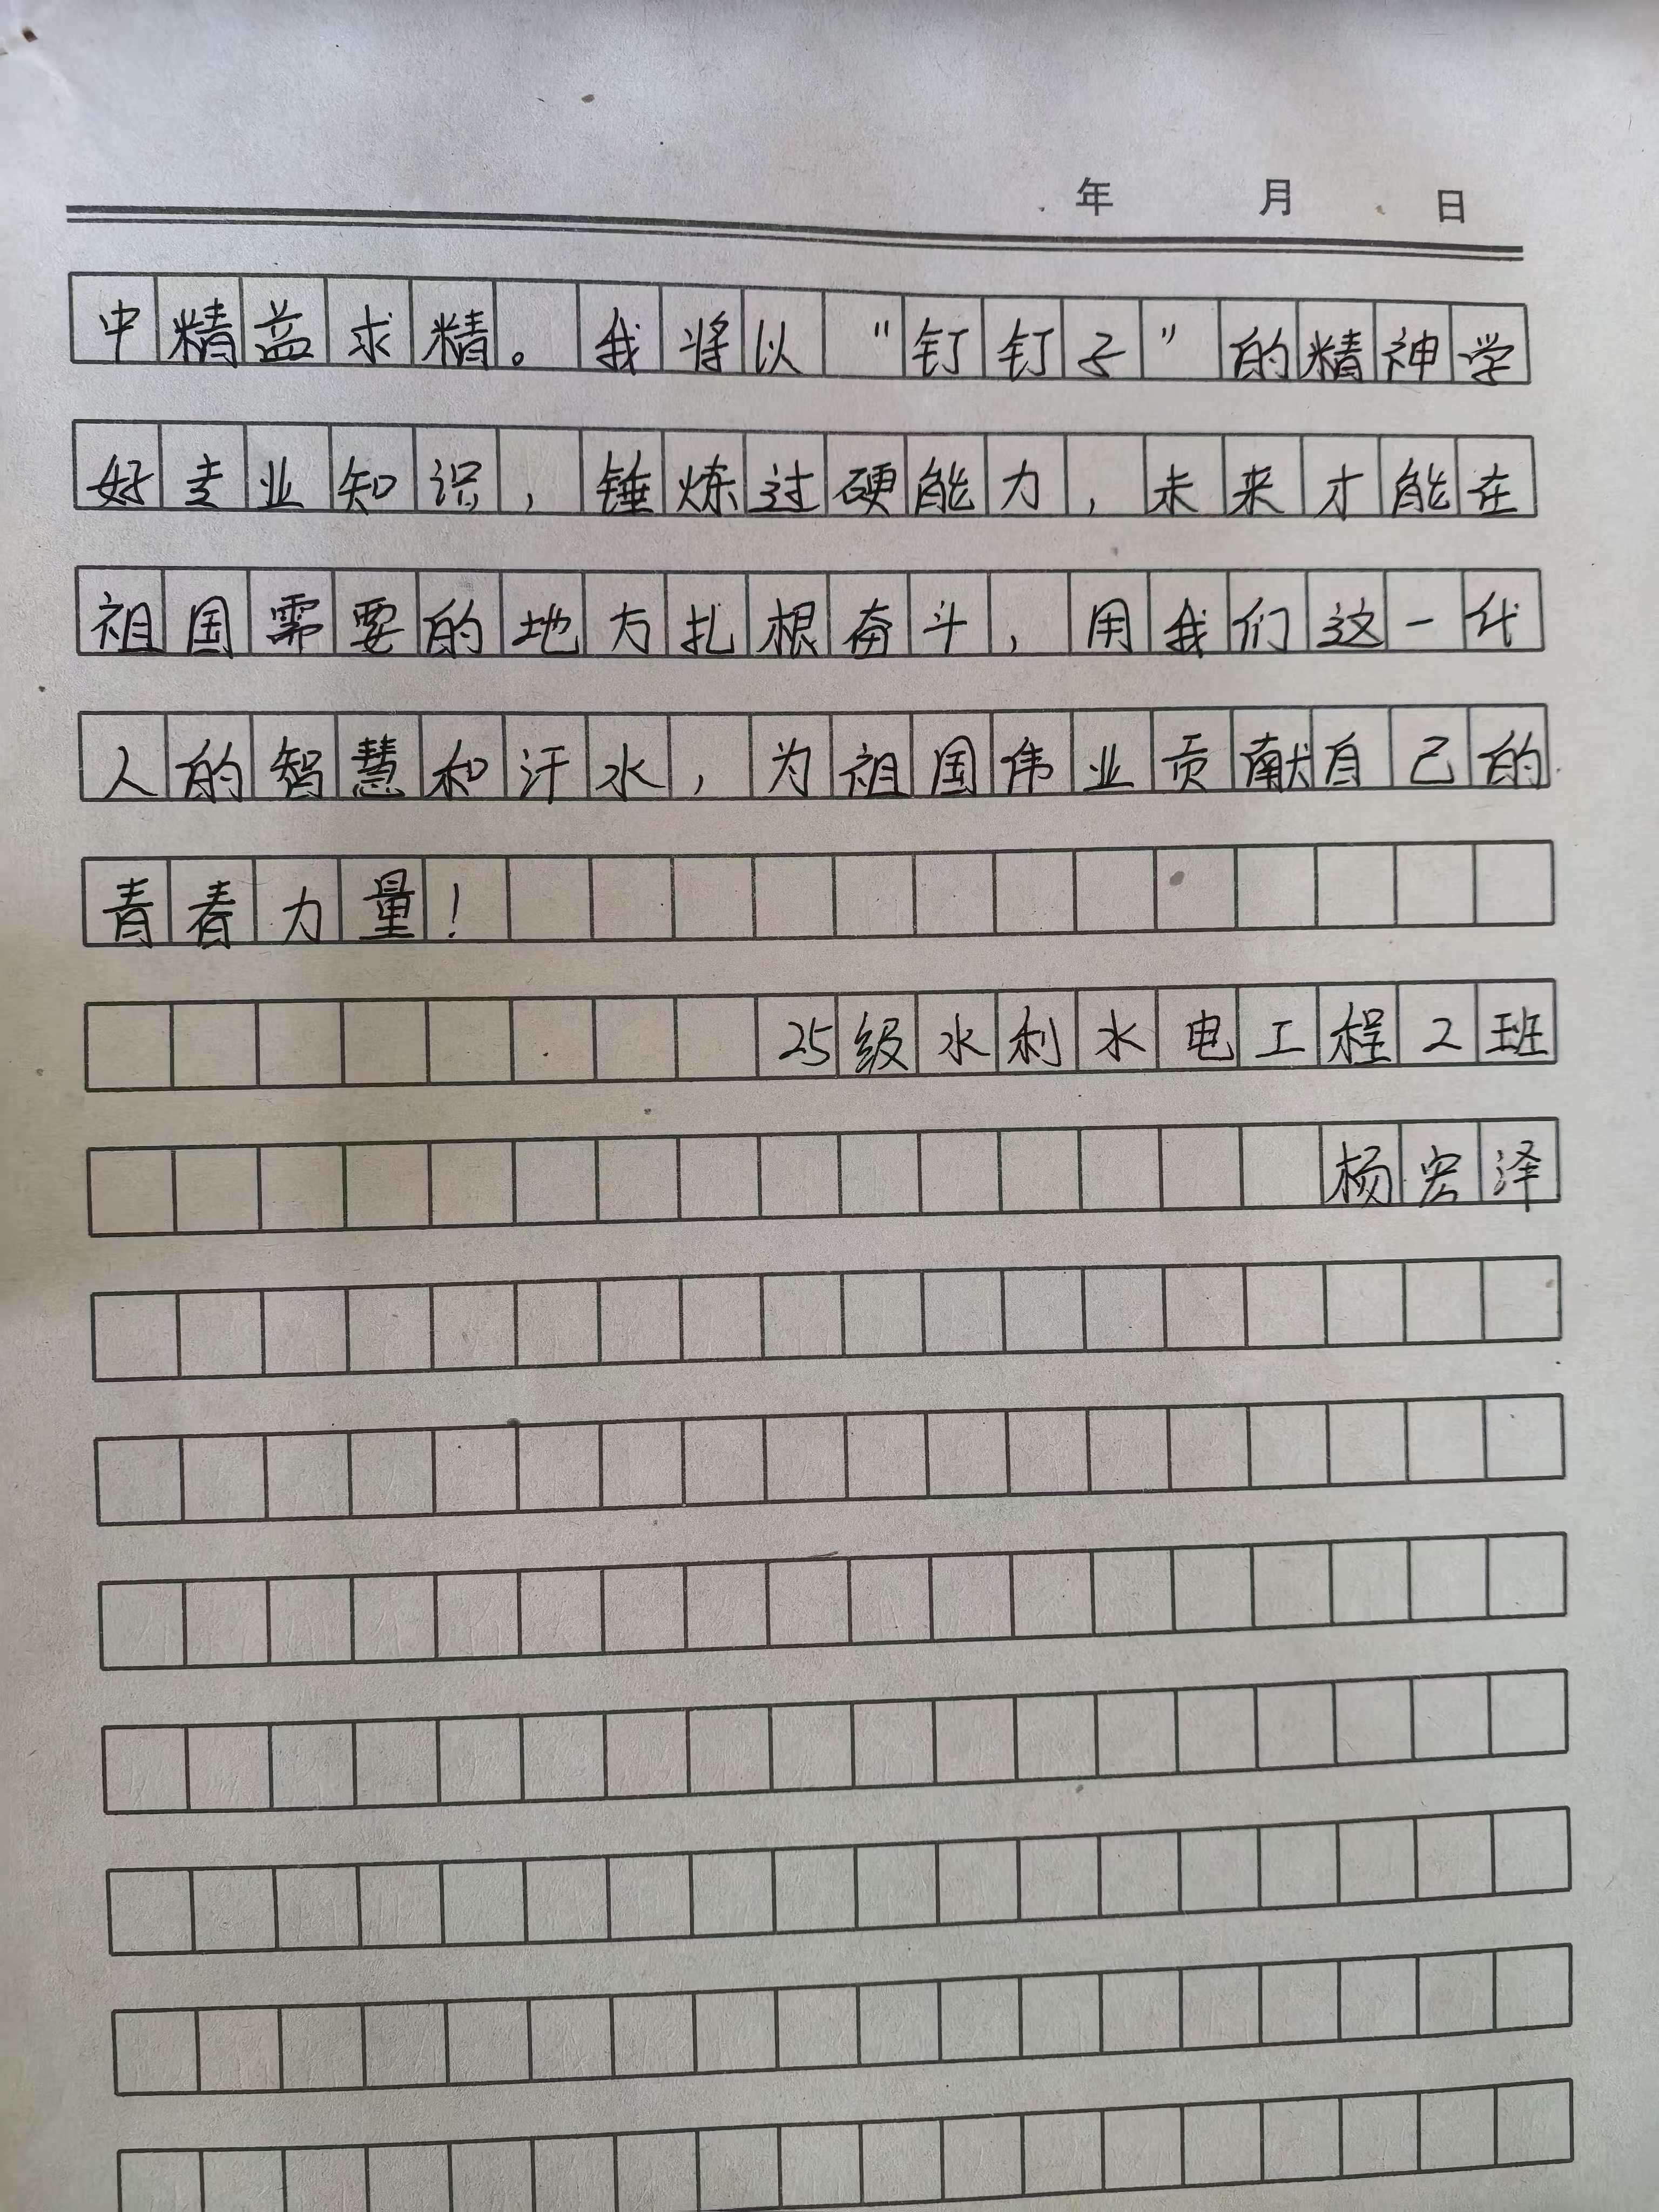 年 月 日
中精益求精。我将以“钉钉子”的精神学
好专业知识，锤炼过硬能力，未来才能在
祖国需要的地方扎根奋斗，用我们这一代
人的智慧和汗水，为祖国伟业贡献自己的
青春力量！
25级水利水电工程2班
杨宏泽